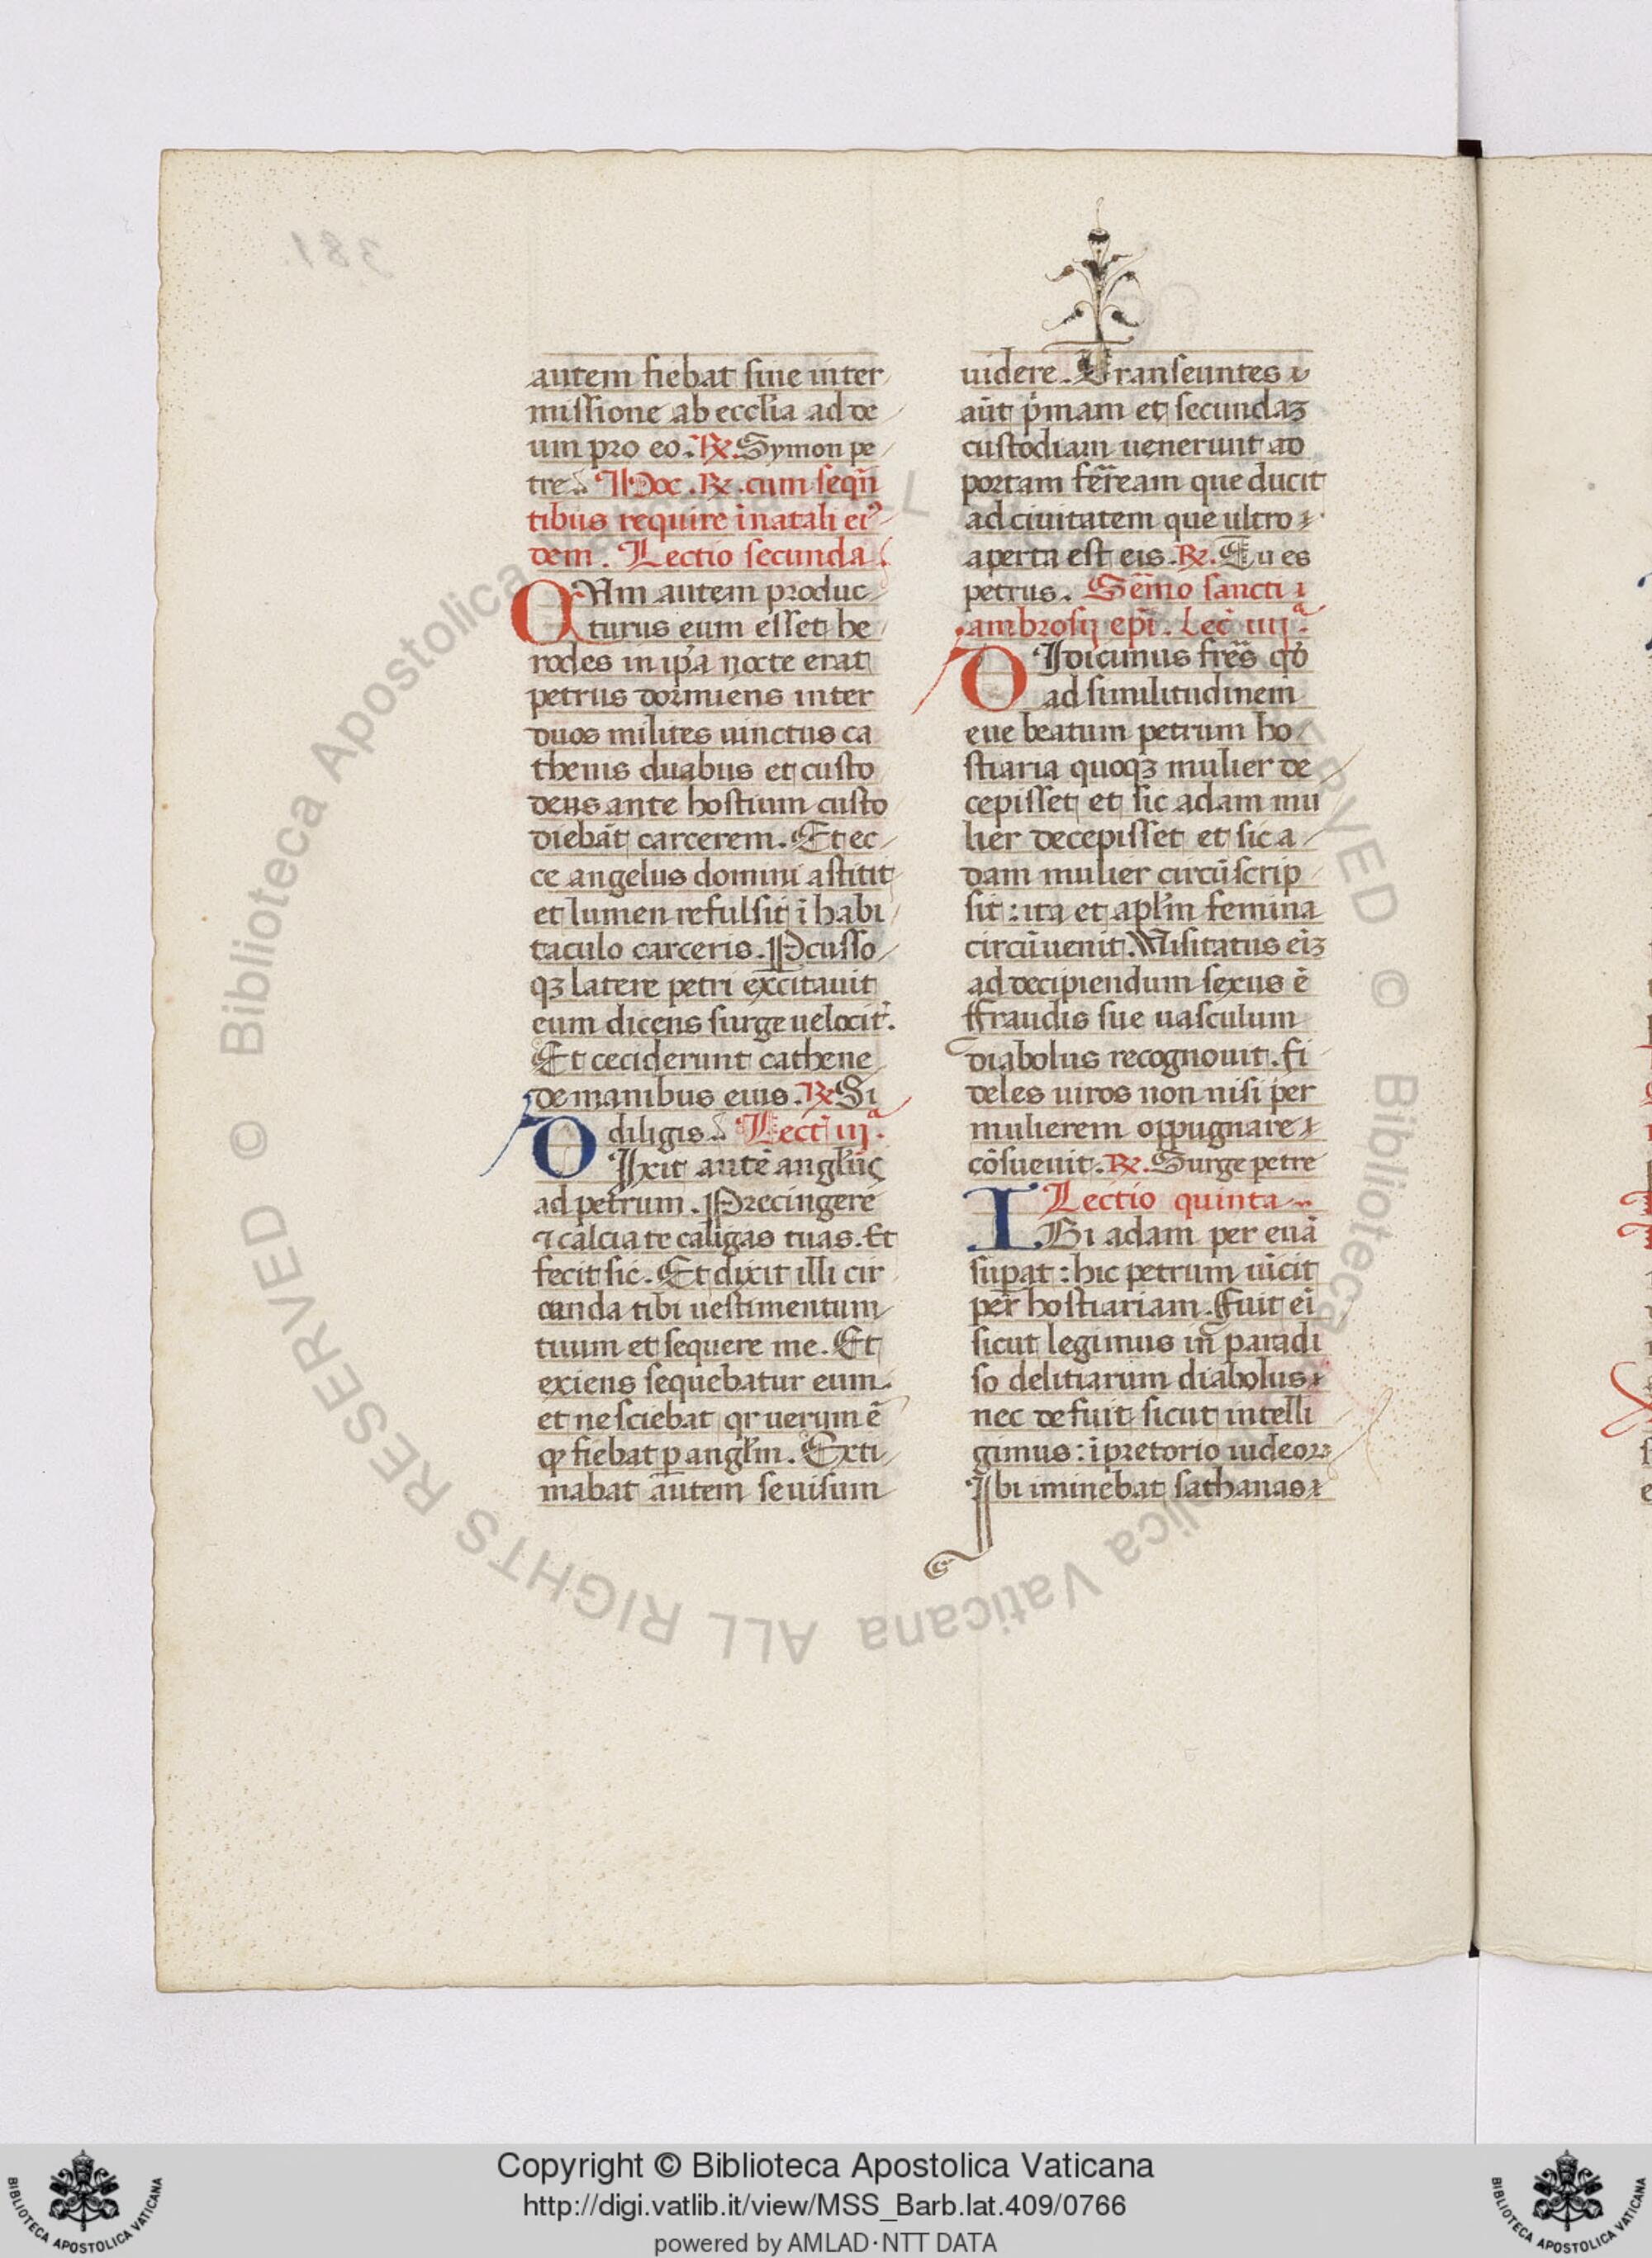 autem fiebat sine inter
missione ab eccl̄ia ad de
um pro eo. ℟. Symon pe
tre. Hoc. ℟. cum seqn̄
tibus require ī natali eiꝰ
dem. Lectio secunda.
QUAm autem produc
turus eum esset he
rodes in ip̄a nocte erat
petrus dormiens inter
duos milites uinctus ca
thenis duabus et custo
dens ante hostium custo
diebāt carcerem. Et ec
ce angelus domini astitit
et lumen refulsit ī habi
taculo carceris. P̲cusso
qꝫ latere petri excitauit
eum dicens surge uelocit̄.
Et ceciderunt cathene
de manibus eius. ℟ Si
diligis. Lect̄ iijᵃ.
DIxit autē angl̄us
ad petrum. Precingere
⁊ calcia te caligas tuas. Et
fecit sic. Et dixit illi cir
cunda tibi uestimentum
tuum et sequere me. Et
exiens sequebatur eum.
et nesciebat qr uerum ē
ꝙ fiebat ꝑ angl̄m. Exti
mabat autem se uisum
uidere. Transeuntes
aūt p̄mam et secundaꝫ
custodiam uenerunt ad
portam fēream que ducit
ad ciuitatem que ultro
aperta est eis. ℟. Tu es
petrus. Sēmo sancti
ambrosij ep̄i. Lec̄ iiijᵃ.
DIdicimus fr̄es qd̄
ad similitudinem
eue beatum petrum ho
stiaria quoqꝫ mulier de
cepisset et sic adam mu
lier decepisset et sic a
dam mulier circūscrip
sit: ita et apl̄m femina
circūuenit. Uisitatus eīꝫ
ad decipiendum sexus ē
ffraudis sue uasculum
diabolus recognouit. fi
deles uiros non nisi per
mulierem oppugnare
cōsueuit. ℟. Surge petre
Lectio quinta
IBi adam per euā
sup̲at: hic petrum uīcit
per hostiariam. Fuit ei
sicut legimus in paradi
so delitiarum diabolus
nec defuit sicut intelli
gimus: ī pretorio iudeoꝝ
Ibi iminebat sathanas
Copyright © Biblioteca Apostolica Vaticana
http://digi.vatlib.it/view/MSS_Barb.lat.409/0766
powered by AMLAD·NTT DATA